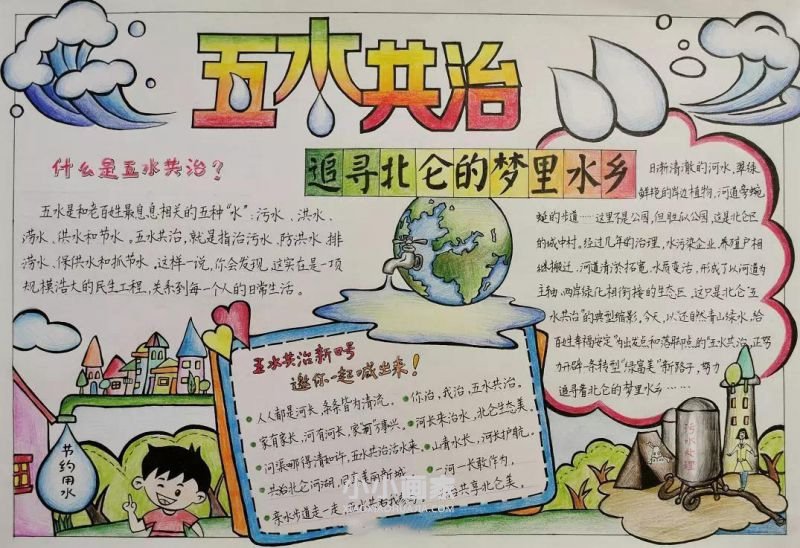 五水共治
追寻北仑的梦里水乡
什么是五水共治？
五水是和老百姓最息息相关的五种“水”：污水、洪水、
涝水、供水和节水。五水共治，就是指治污水、防洪水、排
涝水、保供水和抓节水。这样一说，你会发现，这实在是一项
规模浩大的民生工程，关系到每一个人的日常生活。
日渐清澈的河水，翠绿
鲜艳的岸边植物，河道旁蜿
蜒的步道……这里不是公园，但胜似公园，这是北仑区
的城中村。经过几年的治理，水污染企业、养殖户相
继搬迁，河道清淤拓宽，水质变活，形成了以河道为
主轴，两岸绿化相衔接的生态区，这只是北仑“五
水共治”的典型缩影。今天，以“还自然青山绿水，给
百姓幸福安定”为出发点和落脚点的“五水共治”，正努
力开辟一条转型“绿富美”新路子，努力
追寻着北仑的梦里水乡……
五水共治新口号
邀你一起喊出来！
人人都是河长，条条皆为清流。
家有家长，河有河长，家和万事兴。
河渠那得清如许，五水共治治水来。
共治北仑河湖，
亲水步道走一走，
你治，我治，五水共治。
河长来治水，北仑生态美。
山青水长，河长护航。
一河一长敢作为，
共享北仑美。
节约用水
污水处理
小小画家